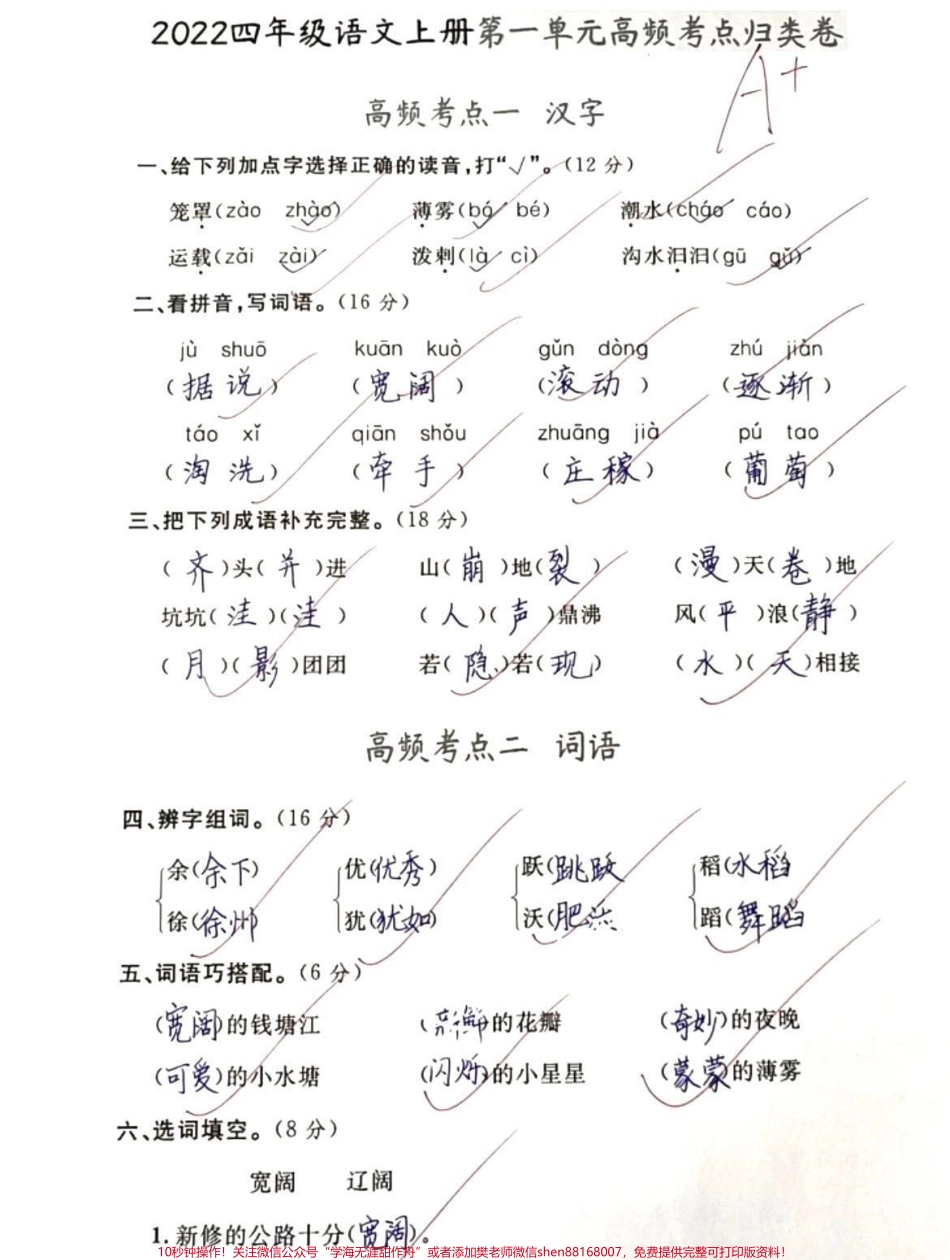 2022四年级语文上册第一单元高频考点归类卷
A+
高频考点一 汉字
一、给下列加点字选择正确的读音,打“√”。(12 分)
笼罩(zào zhào) 薄雾(bó bé) 潮水(cháo cáo)
运载(zǎi zài) 泼剌(là cì) 沟水汩汩(gū gǔ)
二、看拼音,写词语。(16 分)
jù shuō kuān kuò gǔn dòng zhú jiàn
(据说) (宽阔) (滚动) (逐渐)
táo xǐ qiān shǒu zhuāng jià pú tao
(淘洗) (牵手) (庄稼) (葡萄)
三、把下列成语补充完整。(18 分)
(齐)头(并)进 山(崩)地(裂) (漫)天(卷)地
坑坑(洼)(洼) (人)(声)鼎沸 风(平)浪(静)
(月)(影)团团 若(隐)若(现) (水)(天)相接
高频考点二 词语
四、辨字组词。(16 分)
余(余下) 优(优秀) 跃(跳跃) 稻(水稻)
徐(徐州) 犹(犹如) 沃(肥沃) 蹈(舞蹈)
五、词语巧搭配。(6 分)
(宽阔)的钱塘江 (新鲜)的花瓣 (奇妙)的夜晚
(可爱)的小水塘 (闪烁)的小星星 (蒙蒙)的薄雾
六、选词填空。(8 分)
宽阔 辽阔
1. 新修的公路十分(宽阔)。
10秒钟操作!关注微信公众号“学海无涯甜作舟”或者添加樊老师微信shen88168007,免费提供完整可打印版资料!